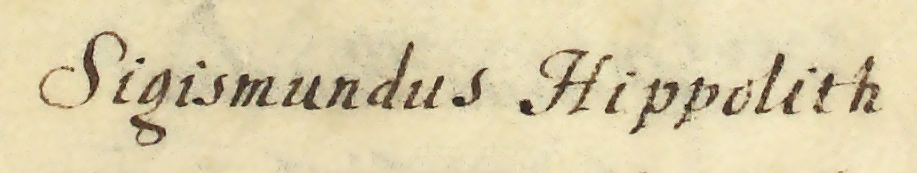 Sigismundus Hippolith